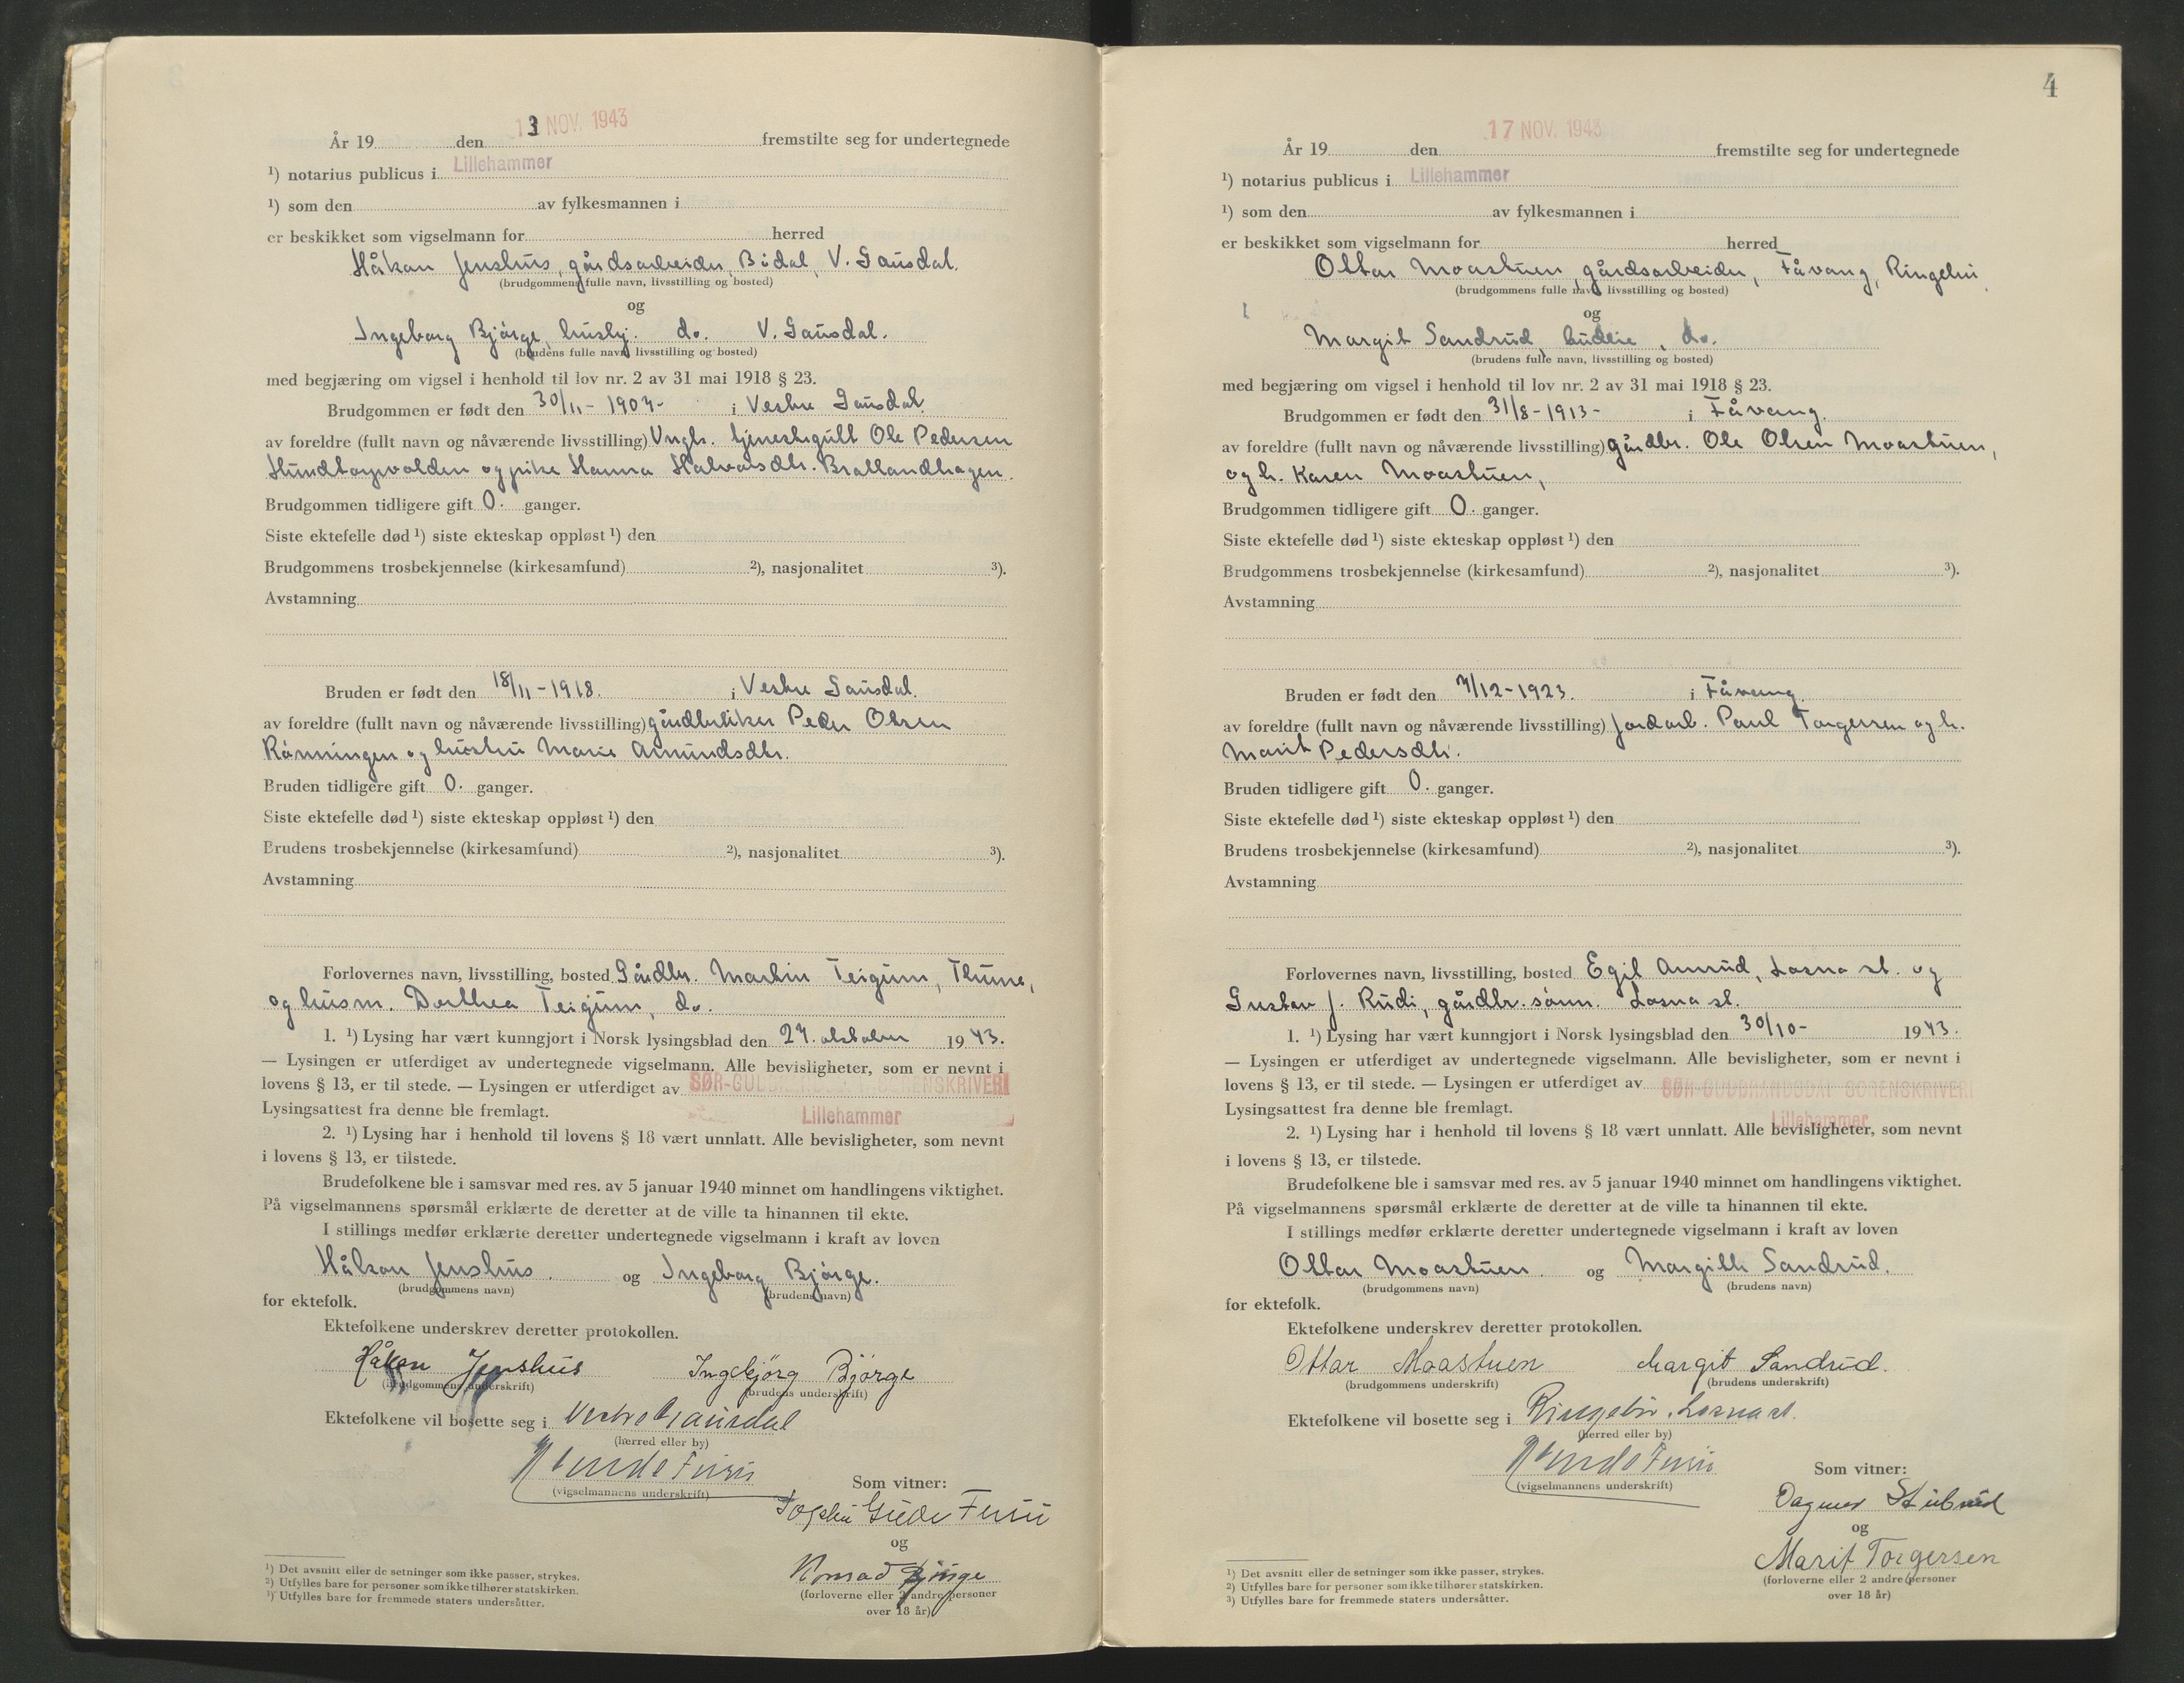 År 19 den 13 NOV. 1943 fremstilte seg for undertegnede
¹) notarius publicus i Lillehammer
¹) som den av fylkesmannen i
er beskikket som vigselmann for herred
Håkon Jenshus, gårdsarbeider, Bödal, V. Gausdal.
(brudgommens fulle navn, livsstilling og bosted)
og
Ingeborg Bjørge, hushj. do. V. Gausdal.
(brudens fulle navn, livsstilling og bosted)
med begjæring om vigsel i henhold til lov nr. 2 av 31 mai 1918 § 23.
Brudgommen er født den 30/11 - 1904 - i Vestre Gausdal.
av foreldre (fullt navn og nåværende livsstilling) Ungk. tjenestegutt Ole Pedersen
og pike Hanna Halvorsdtr.
Brudgommen tidligere gift 0. ganger.
Siste ektefelle død ¹) siste ekteskap oppløst ¹) den
Brudgommens trosbekjennelse (kirkesamfund) ²), nasjonalitet ³).
Avstamning
Bruden er født den 18/11 - 1918. i Vestre Gausdal.
av foreldre (fullt navn og nåværende livsstilling) gårdbruker Peder Olsen
Rønningen og hustru Marie Amundsdtr.
Bruden tidligere gift 0. ganger.
Siste ektefelle død ¹) siste ekteskap oppløst ¹) den
Brudens trosbekjennelse (kirkesamfund) ²), nasjonalitet ³).
Avstamning
Forlovernes navn, livsstilling, bosted Gårdbr. Martin Teigum, Thune,
og husm. Dorthea Teigum, do.
1. ¹) Lysing har vært kunngjort i Norsk lysingsblad den 24. oktober 1943.
— Lysingen er utferdiget av undertegnede vigselmann. Alle bevisligheter, som er nevnt i
lovens § 13, er til stede. — Lysingen er utferdiget av SØR-GUDBRANDSDAL SORENSKRIVERI
Lysingsattest fra denne ble fremlagt. Lillehammer
2. ¹) Lysing har i henhold til lovens § 18 vært unnlatt. Alle bevisligheter, som nevnt
i lovens § 13, er tilstede.
Brudefolkene ble i samsvar med res. av 5 januar 1940 minnet om handlingens viktighet.
På vigselmannens spørsmål erklærte de deretter at de ville ta hinannen til ekte.
I stillings medfør erklærte deretter undertegnede vigselmann i kraft av loven
Håkon Jenshus. og Ingeborg Bjørge.
(brudgommens navn) (brudens navn)
for ektefolk.
Ektefolkene underskrev deretter protokollen.
Håkon Jenshus Ingebjørg Bjørge
(brudgommens underskrift) (brudens underskrift)
Ektefolkene vil bosette seg i Vestre Gausdal
(herred eller by)
(vigselmannens underskrift)
Som vitner:
Gude Furu
og
Konrad Bjørge
(forloverne eller 2 andre personer
over 18 år)
¹) Det avsnitt eller de setninger som ikke passer, strykes.
²) Utfylles bare for personer som ikke tilhører statskirken.
³) Utfylles bare for fremmede staters undersåtter.
4
År 19 den 17 NOV. 1943 fremstilte seg for undertegnede
¹) notarius publicus i Lillehammer
¹) som den av fylkesmannen i
er beskikket som vigselmann for herred
Ottar Moastuen, gårdsarbeider, Fåvang, Ringebu
(brudgommens fulle navn, livsstilling og bosted)
og
Margit Sandrud, budeie, do.
(brudens fulle navn, livsstilling og bosted)
med begjæring om vigsel i henhold til lov nr. 2 av 31 mai 1918 § 23.
Brudgommen er født den 31/8 - 1913 - i Fåvang.
av foreldre (fullt navn og nåværende livsstilling) gårdbr. Ole Olsen Moastuen,
og h. Karen Moastuen,
Brudgommen tidligere gift 0. ganger.
Siste ektefelle død ¹) siste ekteskap oppløst ¹) den
Brudgommens trosbekjennelse (kirkesamfund) ²), nasjonalitet ³).
Avstamning
Bruden er født den 4/12 - 1923. i Fåvang
av foreldre (fullt navn og nåværende livsstilling) jordarb. Paul Torgersen og h.
Marit Pedersdtr.
Bruden tidligere gift 0. ganger.
Siste ektefelle død ¹) siste ekteskap oppløst ¹) den
Brudens trosbekjennelse (kirkesamfund) ²), nasjonalitet ³).
Avstamning
Forlovernes navn, livsstilling, bosted Egil Amrud, Losna st. og
Gustav J. Rudi, gårdbr. sønn. Losna st.
1. ¹) Lysing har vært kunngjort i Norsk lysingsblad den 30/10 - 1943.
— Lysingen er utferdiget av undertegnede vigselmann. Alle bevisligheter, som er nevnt i
lovens § 13, er til stede. — Lysingen er utferdiget av SØR-GUDBRANDSDAL SORENSKRIVERI
Lysingsattest fra denne ble fremlagt. Lillehammer
2. ¹) Lysing har i henhold til lovens § 18 vært unnlatt. Alle bevisligheter, som nevnt
i lovens § 13, er tilstede.
Brudefolkene ble i samsvar med res. av 5 januar 1940 minnet om handlingens viktighet.
På vigselmannens spørsmål erklærte de deretter at de ville ta hinannen til ekte.
I stillings medfør erklærte deretter undertegnede vigselmann i kraft av loven
Ottar Moastuen. og Margith Sandrud.
(brudgommens navn) (brudens navn)
for ektefolk.
Ektefolkene underskrev deretter protokollen.
Ottar Moastuen Margit Sandrud.
(brudgommens underskrift) (brudens underskrift)
Ektefolkene vil bosette seg i Ringebu. Losna st.
(herred eller by)
(vigselmannens underskrift)
Som vitner:
Dagmar Stubrud
og
Marit Torgersen
(forloverne eller 2 andre personer
over 18 år)
¹) Det avsnitt eller de setninger som ikke passer, strykes.
²) Utfylles bare for personer som ikke tilhører statskirken.
³) Utfylles bare for fremmede staters undersåtter.